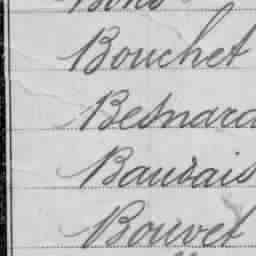 Bouchet
Besnard
Bausais
Bouvet